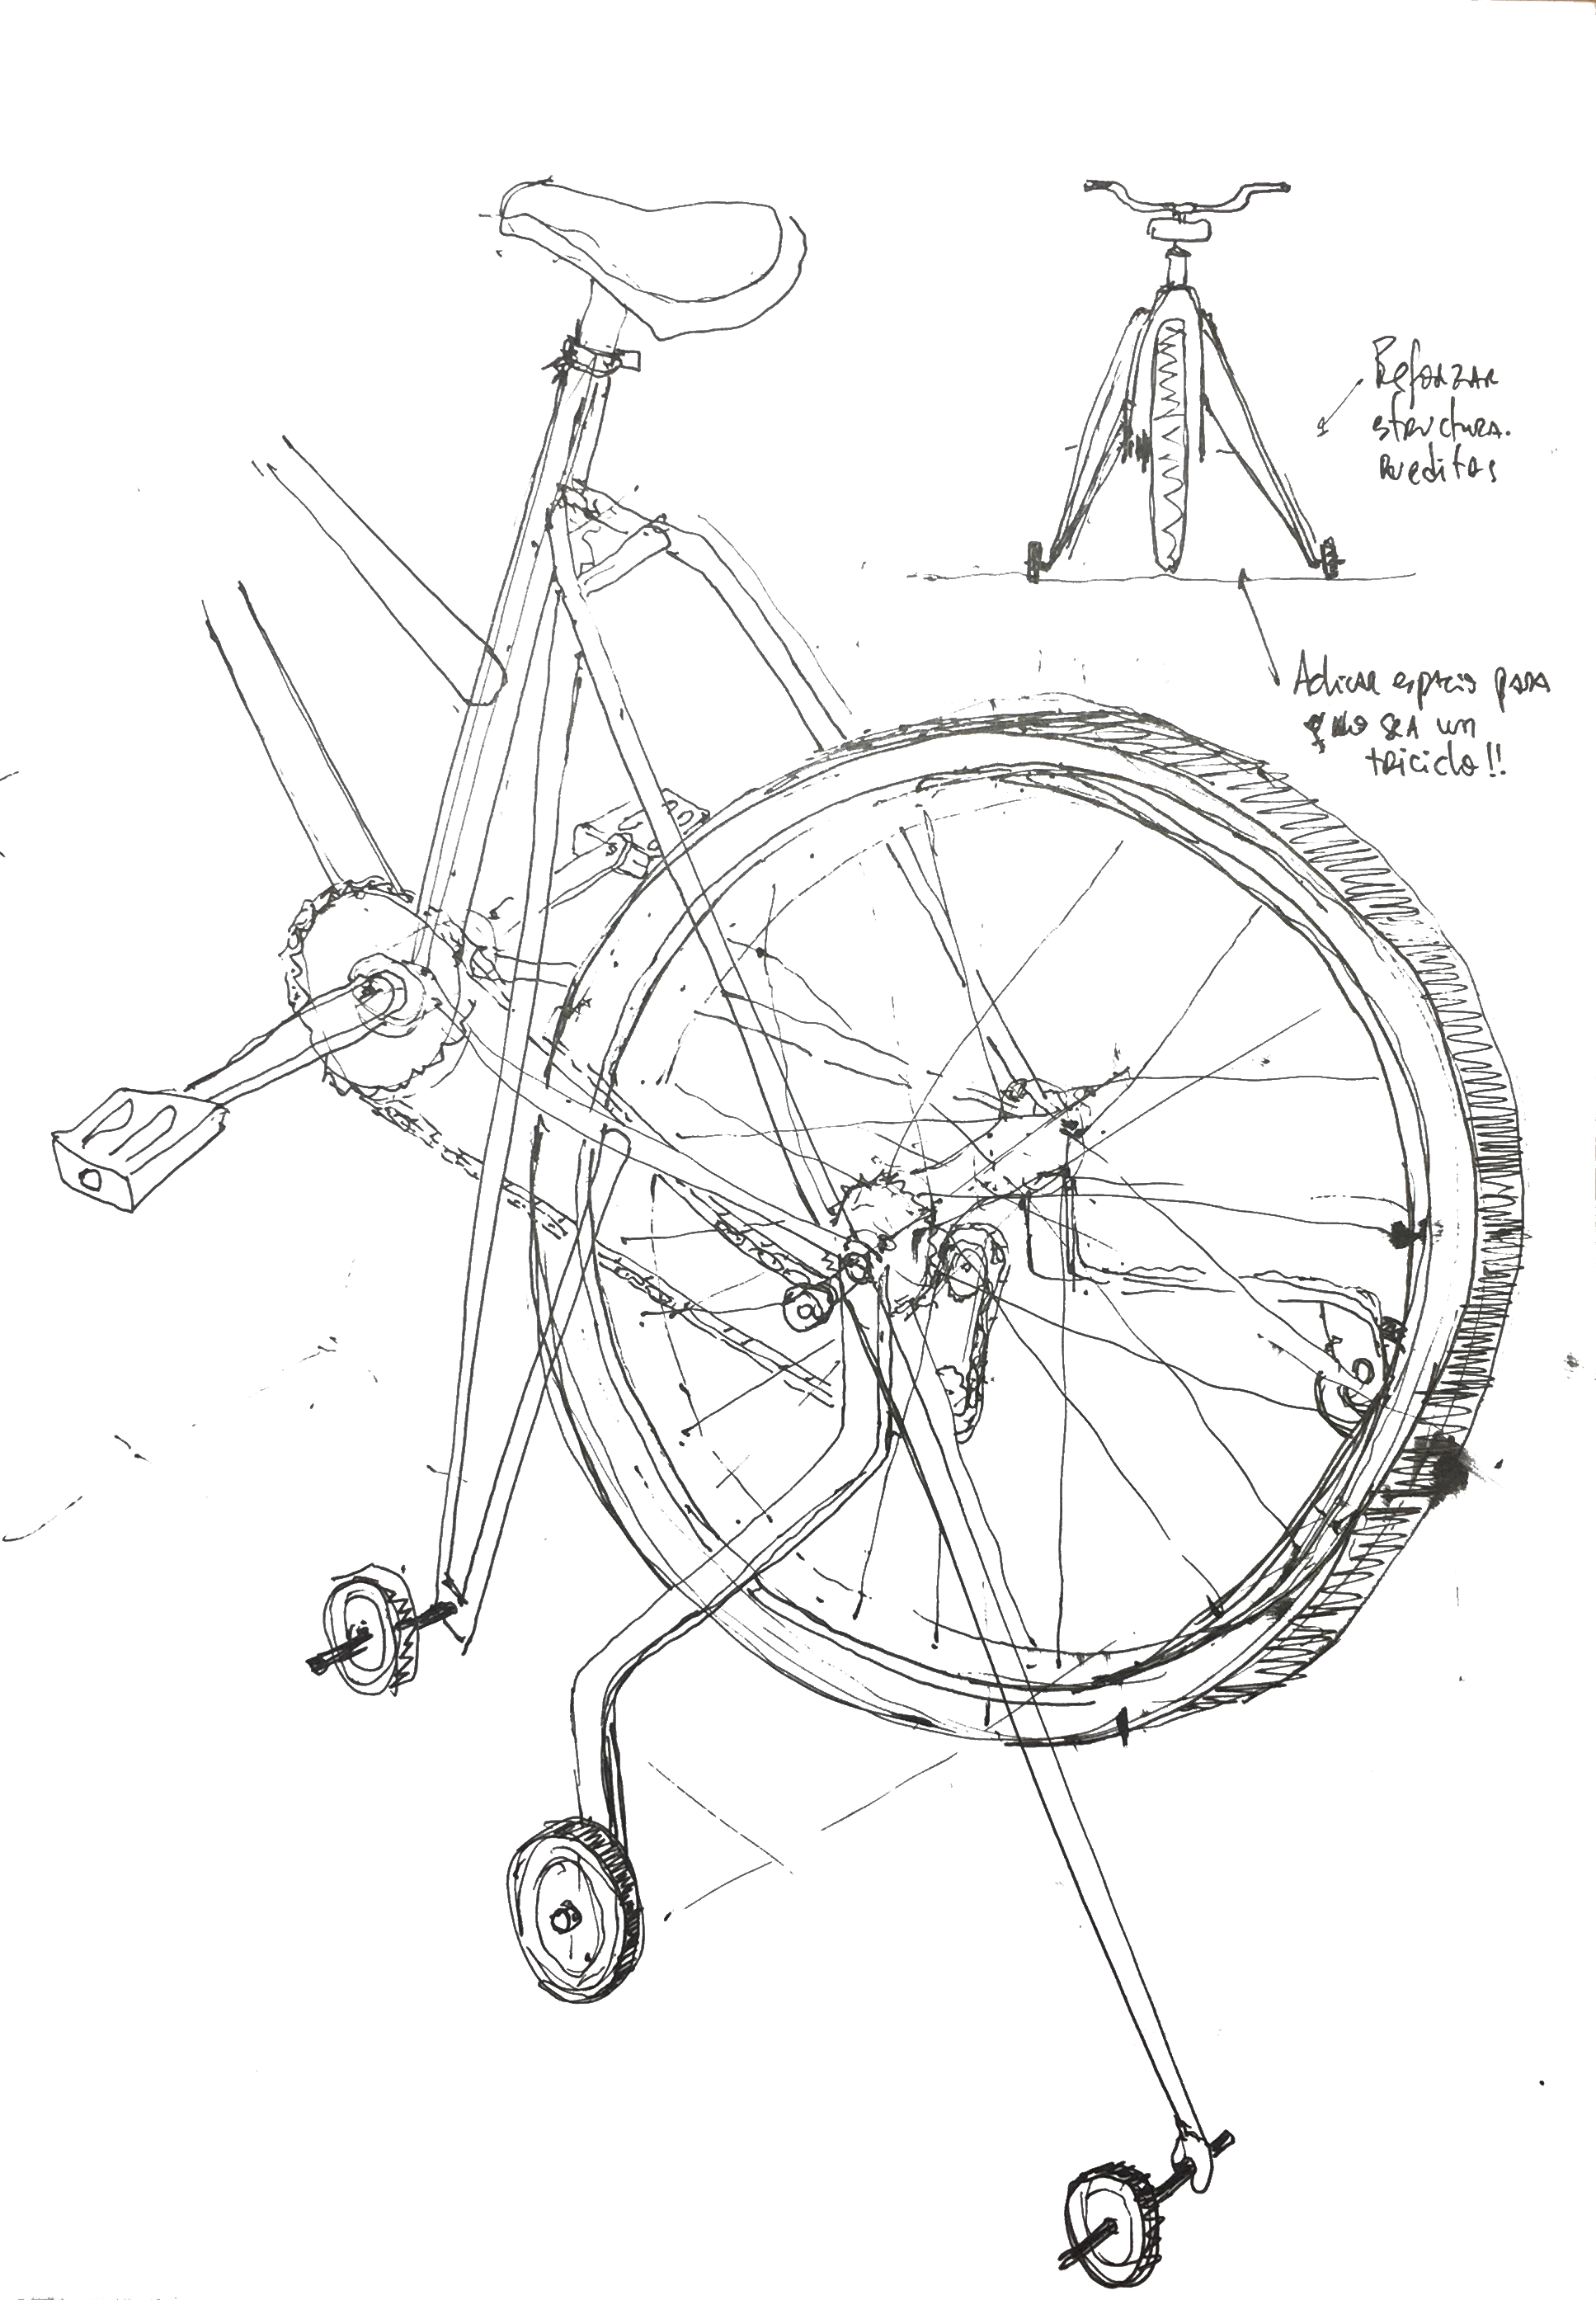 Reforzar
structura.
rueditas
Adicar espacio para
q no sea un
triciclo!!